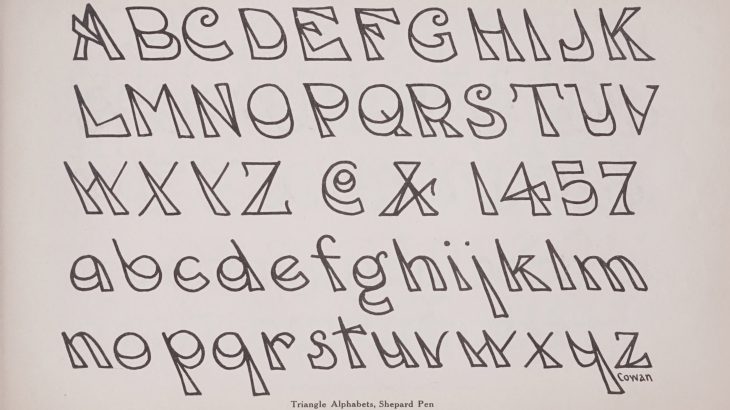 ABCDEFGHIJK
LMNOPQRSTUV
WXYZ @ & 1457
abcdefghijklm
nopqrstuvwxyz
Cowan
Triangle Alphabets, Shepard Pen